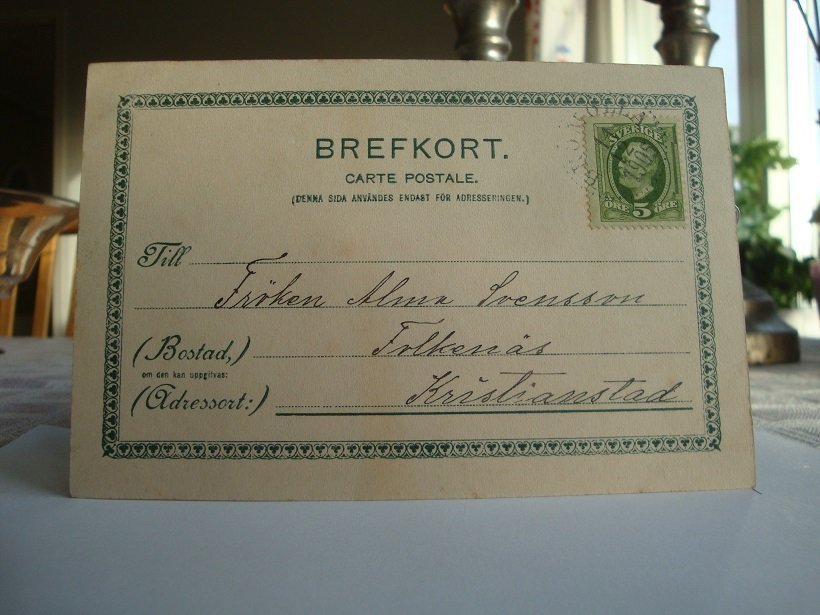 BREFKORT.
CARTE POSTALE.
(DENNA SIDA ANVÄNDES ENDAST FÖR ADRESSERINGEN.)
SVERIGE
5
ÖRE ÖRE
Till
Fröken Alma Svensson
(Bostad,) Folkenäs
om den kan uppgifvas:
(Adressort:) Kristianstad